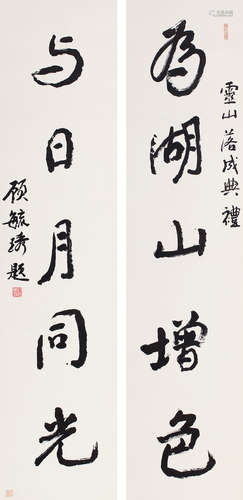 靈山落成典禮
為湖山增色
与日月同光
顾毓琇题